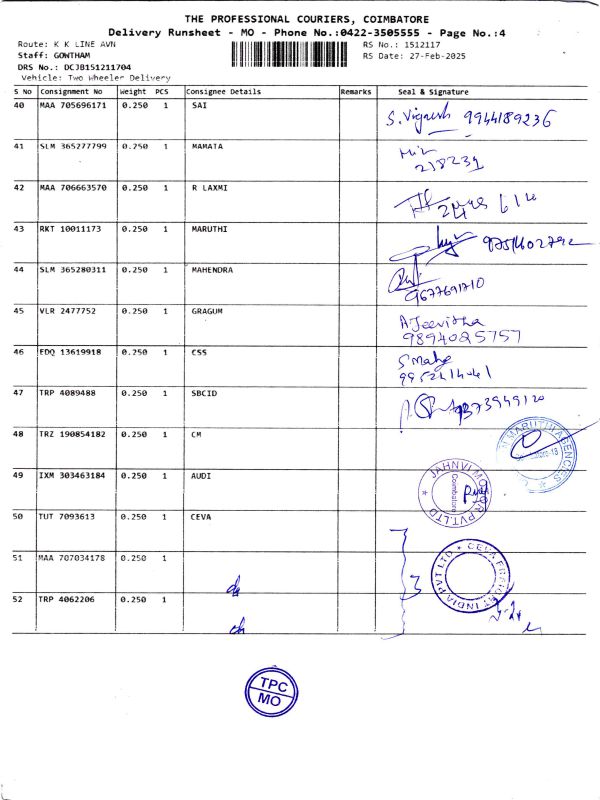 THE PROFESSIONAL COURIERS, COIMBATORE
Delivery Runsheet - MO - Phone No.:0422-3505555 - Page No.:4
Route: K K LINE AVN
RS No.: 1512117
Staff: GOWTHAM
RS Date: 27-Feb-2025
DRS No.: DCJB151211704
Vehicle: Two Wheeler Delivery
S No Consignment No Weight PCS Consignee Details Remarks Seal & Signature
40 MAA 705696171 0.250 1 SAI S. Vignesh 9944189236
41 SLM 365277799 0.250 1 MAMATA 278231
42 MAA 706663570 0.250 1 R LAXMI
43 RKT 10011173 0.250 1 MARUTHI 9751602792
44 SLM 365280311 0.250 1 MAHENDRA 9677691710
45 VLR 2477752 0.250 1 GRAGUM A.Jeevitha 9894025757
46 EDQ 13619918 0.250 1 CSS
47 TRP 4089488 0.250 1 SBCID
48 TRZ 190854182 0.250 1 CM MARUTHI AGENCIES
49 IXM 303463184 0.250 1 AUDI JAHNVI MOTOR PVT.LTD Coimbatore
50 TUT 7093613 0.250 1 CEVA
51 MAA 707034178 0.250 1 CEVA FREIGHT INDIA PVT LTD
52 TRP 4062206 0.250 1
TPC
MO